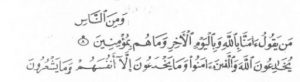 وَمِنَ ٱلنَّاسِ
مَن يَقُولُ ءَامَنَّا بِٱللَّهِ وَبِٱلۡيَوۡمِ ٱلۡأٓخِرِ وَمَا هُم بِمُؤۡمِنِينَ ٨
يُخَٰدِعُونَ ٱللَّهَ وَٱلَّذِينَ ءَامَنُواْ وَمَا يَخۡدَعُونَ إِلَّآ أَنفُسَهُمۡ وَمَا يَشۡعُرُونَ